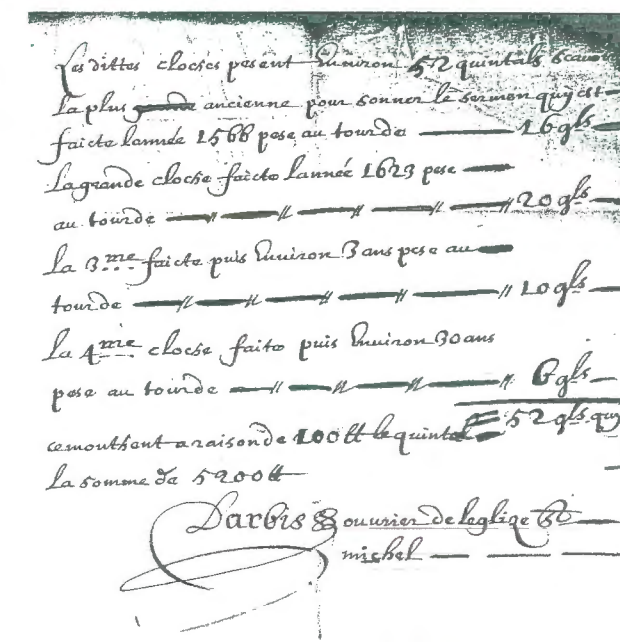 Les dittes cloches pesent Environ 52 quintals scauoir
La plus ancienne pour sonner le sermon quy est
faicte lannée 1566 pese au tour de 16 qls
La grande cloche faicte lannée 1623 pese
au tour de 20 qls
La 3me faicte puis Enuiron 3 ans pese au
tour de 10 qls
La 4me cloche faite puis Enuiron 30 ans
pese au tour de 6 qls
52 qls quy
ce monthent a raison de 100 tt le quintal
La somme de 5200 tt
Darbis ouurier de leglize St
michel